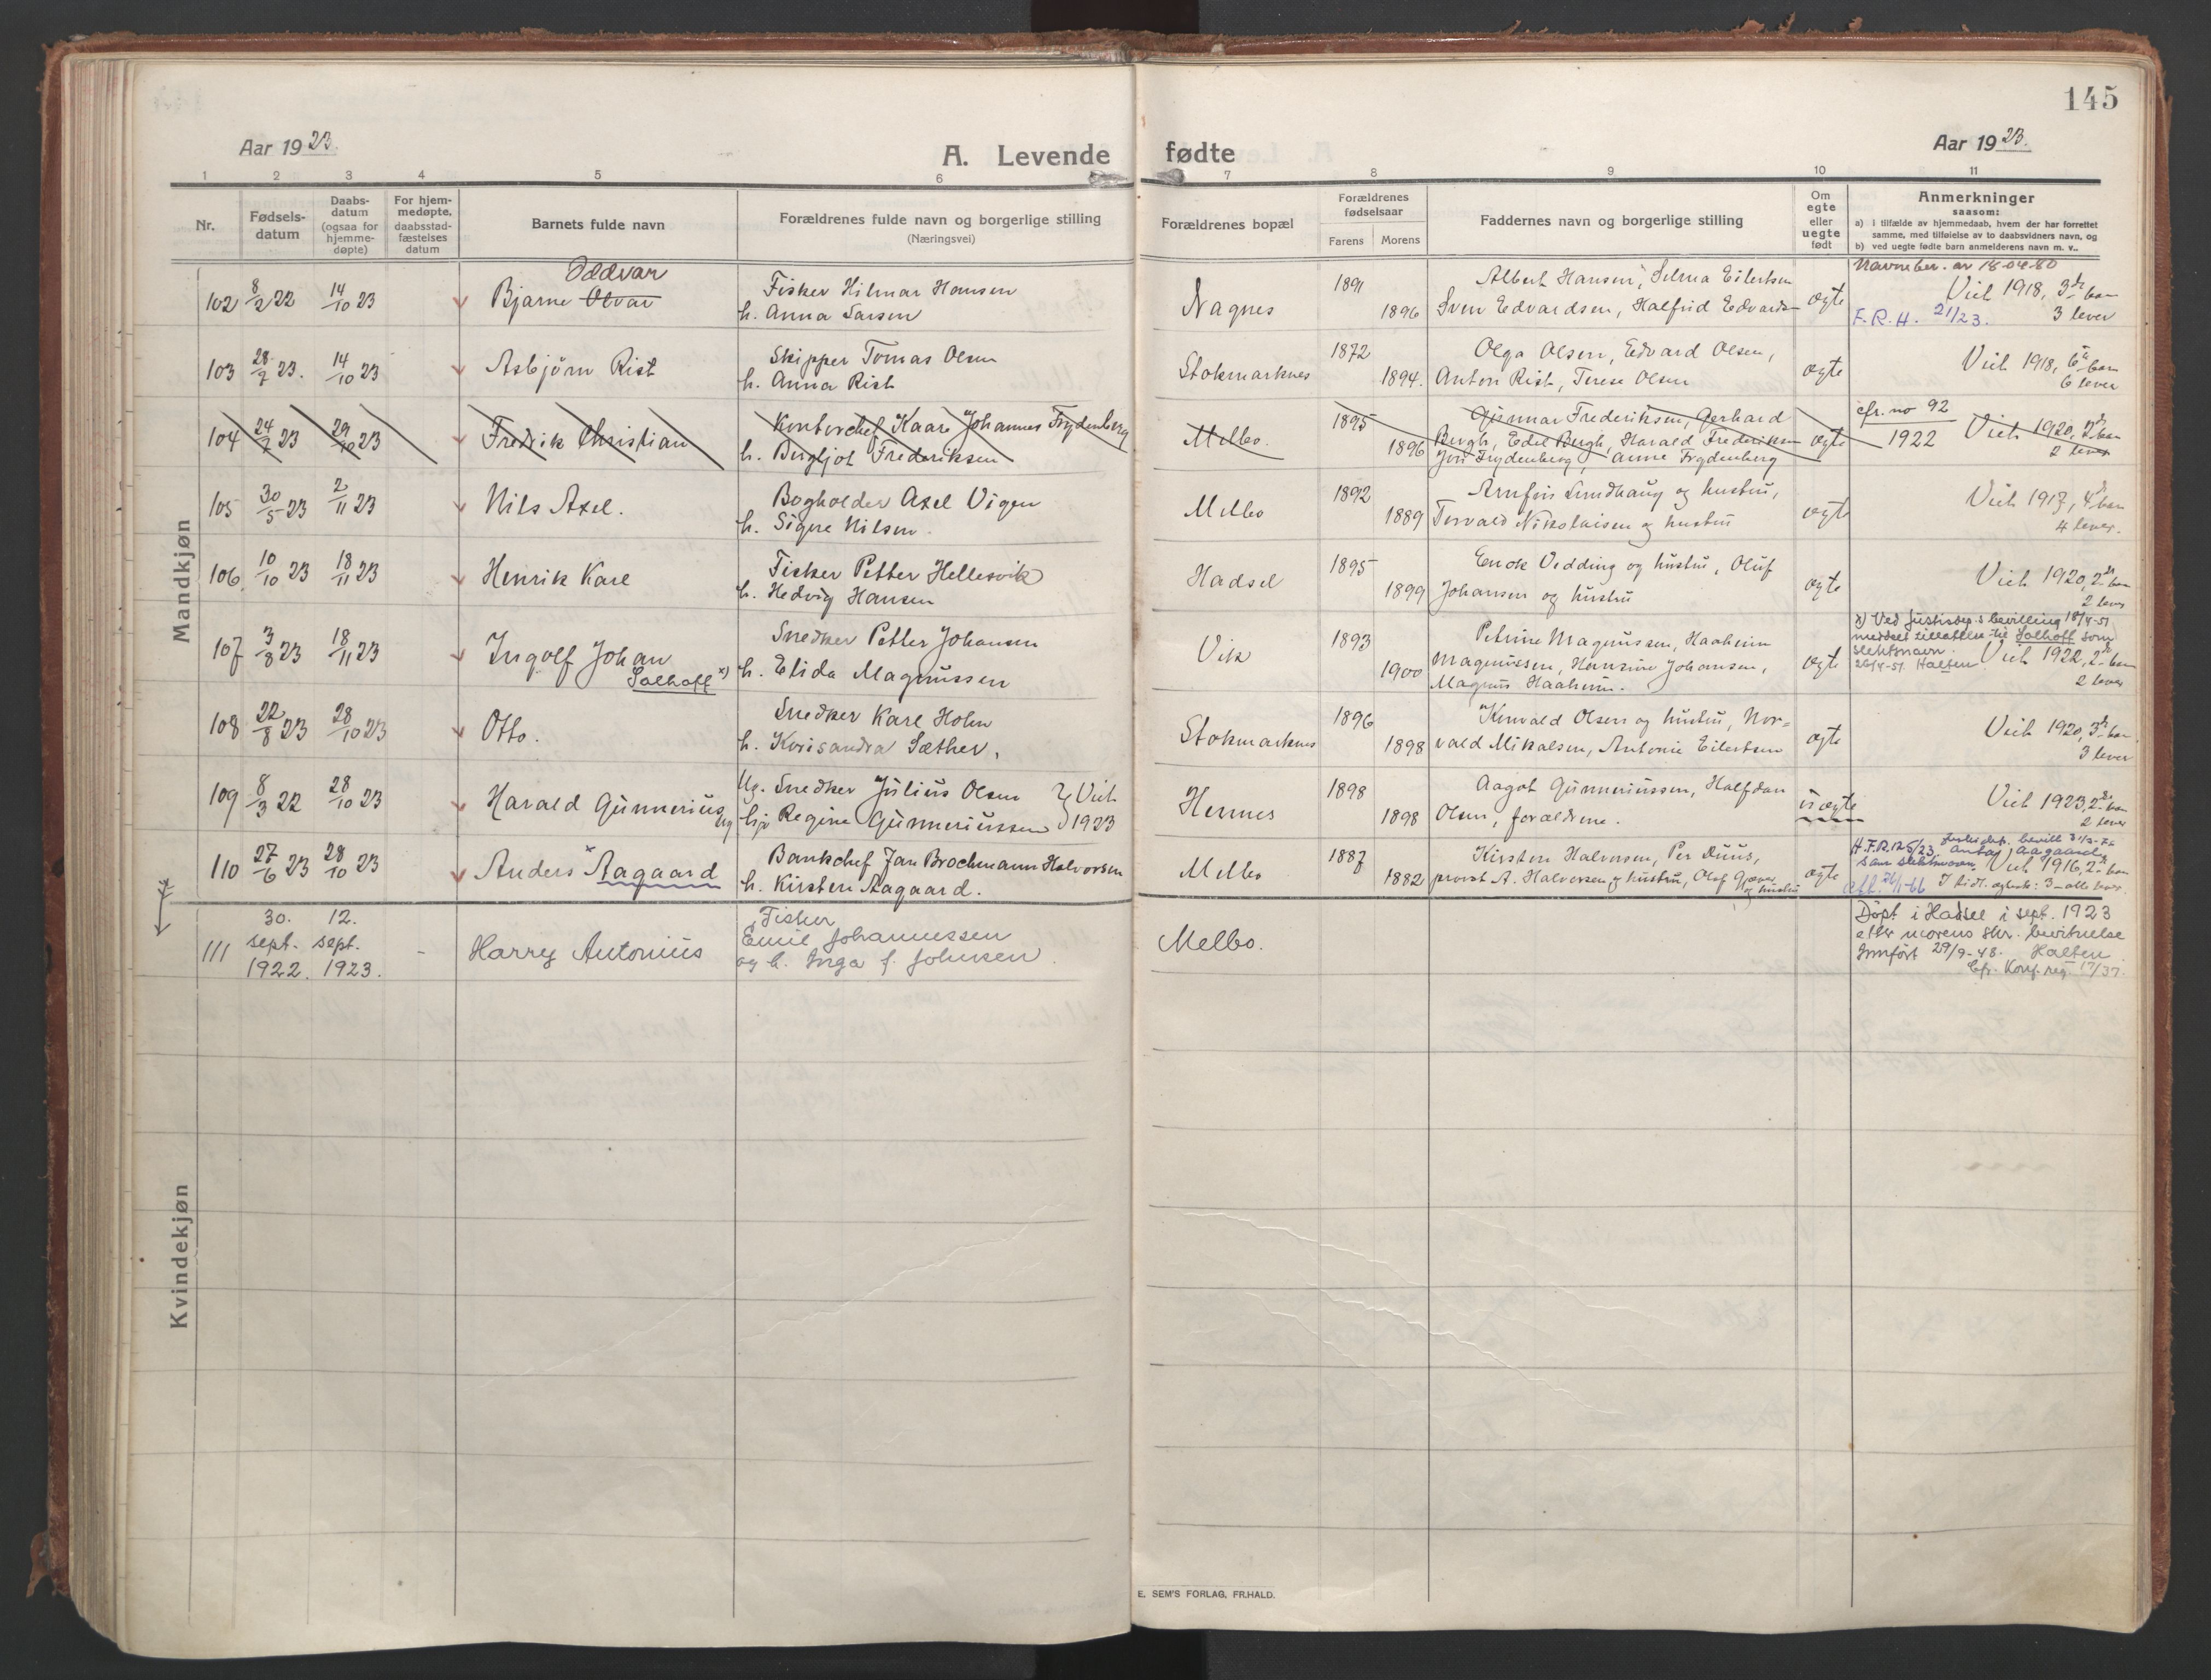 145
Aar 1923.
A. Levende fødte
Aar 1923.
1 2 3 4 5 6 7 8 9 10 11
Nr.
Fødsels-
datum
Daabs-
datum
(ogsaa for
hjemme-
døpte)
For hjem-
medøpte,
daabsstad-
fæstelses
datum
Barnets fulde navn
Forældrenes fulde navn og borgerlige stilling
(Næringsvei)
Forældrenes bopæl
Forældrenes
fødselsaar
Farens Morens
Faddernes navn og borgerlige stilling
Om
egte
eller
uegte
født
Anmerkninger
saasom:
a) i tilfælde av hjemmedaab, hvem der har forrettet
samme, med tilføielse av to daabsvidners navn, og
b) ved uegte fødte barn anmelderens navn m. v..
Mandkjøn
Oddvar Navneber. av 18-04-80
102 8/2 22 14/10 23 Bjarne Olvar Fisker Hilmar Hansen Nagnes 1891 Albert Hansen, Selma Eilertsen egte Viet 1918, 3die barn
h. Anna Larsen 1896 Sven Edvardsen, Halfrid Edvards- F.R.H. 21/23. 3 lever
103 28/7 23. 14/10 23 Asbjørn Rist Skipper Tomas Olsen Stokmarknes 1872 Olga Olsen, Edvard Olsen, egte Viet 1918, 6te barn
h. Anna Rist 1894. Anton Rist, Terese Olsen 6 lever
104 24/7 23 29/10 23 Fredrik Christian Kontorchef Kaare Johannes Frydenberg Melbo. 1895 Gunnar Frederiksen, Gerhard egte cfr. no 92
h. Bergljot Frederiksen 1896 Bergh, Edel Bergh, Harald Frederiksen 1922 Viet 1920, 2det barn
Frydenberg, Anne Frydenberg 2 lever
105 30/5 23 2/11 23 Nils Axel. Bogholder Axel Vigen Melbo 1892 Arnfin Sundhaug og hustru, egte Viet 1917, 4de barn
h. Signe Nilsen. 1889 Torvald Nikolaisen og hustru 4 lever.
106. 10/10 23 18/11 23 Henrik Karl Fisker Petter Hellesvik Hadsel 1895 Enok Vedding og hustru, Oluf egte Viet 1920, 2det barn
h. Hedvig Hansen 1899 Johansen og hustru 2 lever
107 3/8 23 18/11 23 Ingolf Johan Snedker Petter Johansen Vik 1893 Petrine Magnussen, Haaheim egte x) Ved Justisdep.s bevilling 18/4-51
Solhoff x) h. Elida Magnussen 1900 Magnussen, Hansine Johansen, meddelt tillatelse til Solhoff som
Magnus Haaheim. slektsnavn.
26/4-51. Halten Viet 1922, 2det barn
2 lever
108 22/8 23 28/10 23 Otto. Snedker Karl Holm Stokmarknes 1896 Konvald Olsen og hustru, Nor- egte Viet 1920, 3die barn
h. Korisandra Sæther, 1898 vald Mikalsen, Antonie Eilertsen 3 lever
109 8/3 22 28/10 23 Harald Gunnerius Ug. Snedker Julius Olsen } Viet Hennes 1898 Aagot Gunneriussen, Halfdan uegte Viet 1923, 2det barn
Regine Gunneriussen } 1923 1898 Olsen, forældrene. 2 lever
110 27/6 23 28/10 23 Anders x Aagaard Bankchef Jan Brochmann Halvorsen Melbo 1887 Kirsten Halvorsen, Per Duus, egte H.F.R. 125/23.
h. Kirsten Aagaard. 1882 provst A. Halvorsen og hustru, Olaf Gjæver Aagaard
og hustru som slektsnavn Viet 1916, 2det barn
111 30. sept. 1922. 12. sept. 1923. - Harry Antonius Fisker Melbo. Døpt i Hadsel i sept. 1923
Emil Johannessen etter morens skr. bevitnelse
og h. Inga f. Johnsen. Innført 29/9-48. Halten
Cfr. Konf.reg. 17/37.
Kvindekjøn
E. SEM'S FORLAG, FR.HALD.